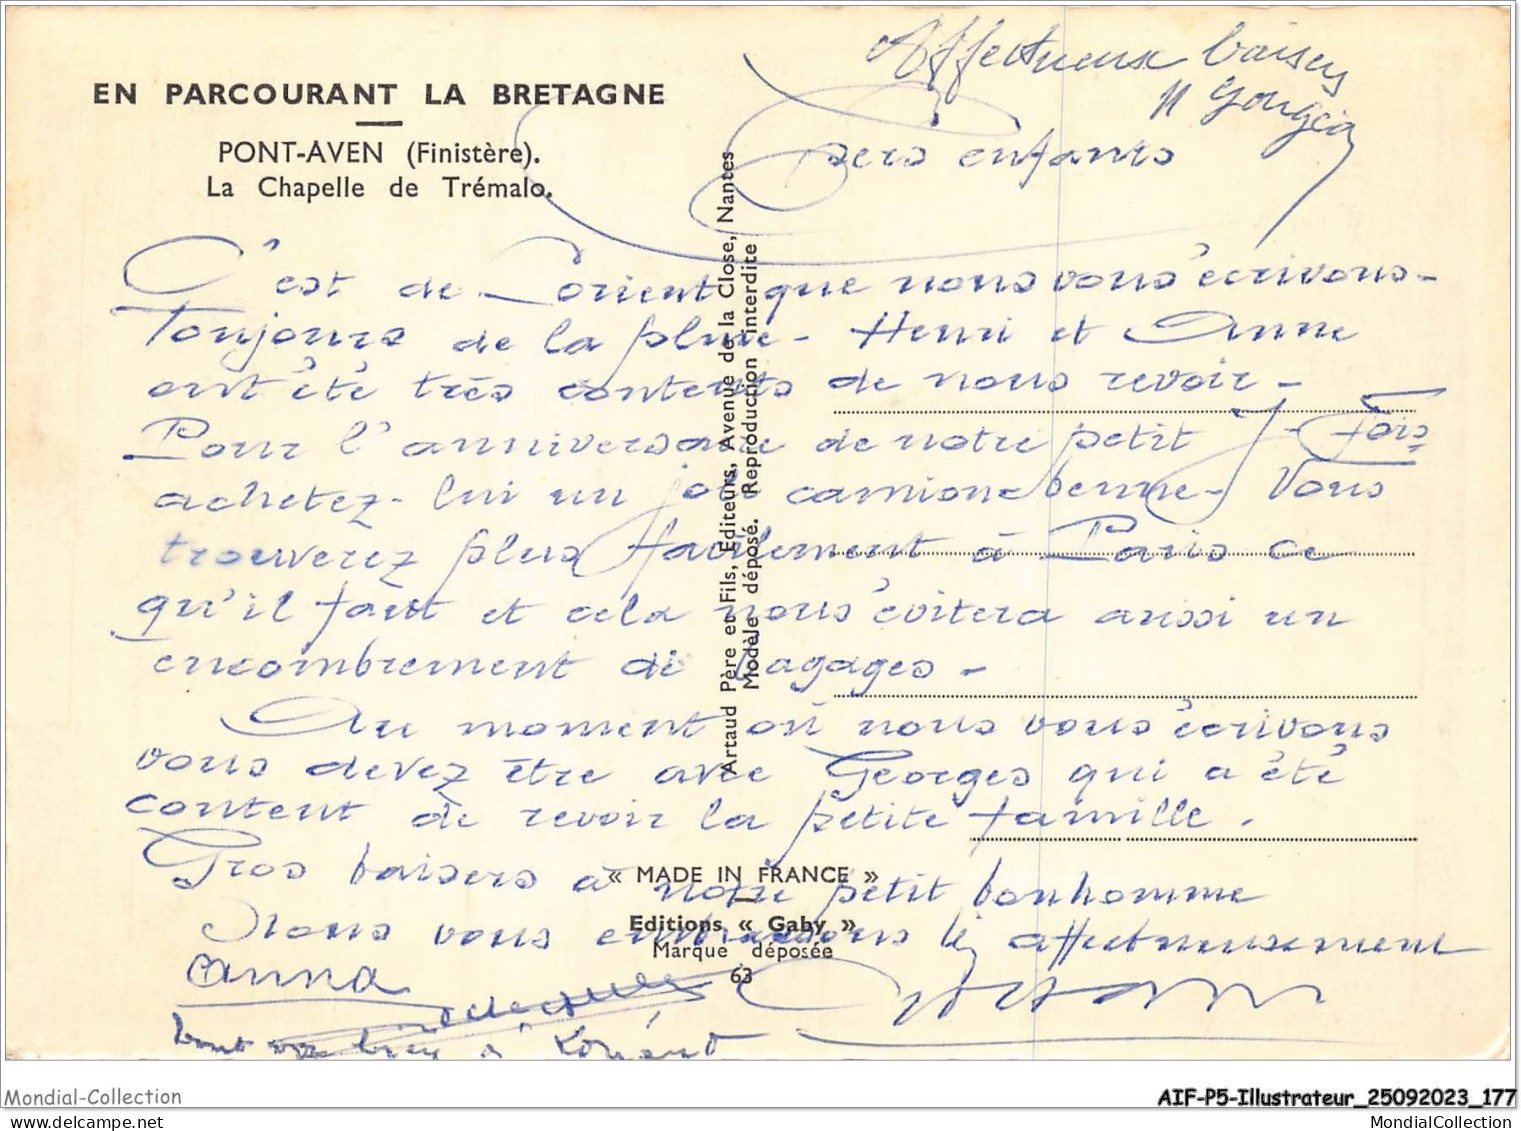 EN PARCOURANT LA BRETAGNE
PONT-AVEN (Finistère).
La Chapelle de Trémalo.
Affectueux baisers
enfants
C'est de Lorient que nous vous écrivons -
Toujours de la pluie - Henri et Anne
ont été très contents de nous revoir -
Pour l'anniversaire de notre petit J. Fois
achetez-lui un joli camion benne - Vous
trouverez plus facilement à Paris ce
qu'il faut et cela nous évitera aussi un
encombrement de bagages -
Au moment où nous vous écrivons
vous devez être avec Georges qui a été
content de revoir la petite famille.
Gros baisers à notre petit bonhomme
Nous vous embrassons affectueusement
Anna
Artaud Père et Fils, Editeurs, Avenue de la Close, Nantes
Modèle déposé. Reproduction interdite
« MADE IN FRANCE »
Editions « Gaby »
Marque déposée
63
Mondial-Collection
AIF-P5-Illustrateur_25092023_177
https://www.delcampe.net
MondialCollection